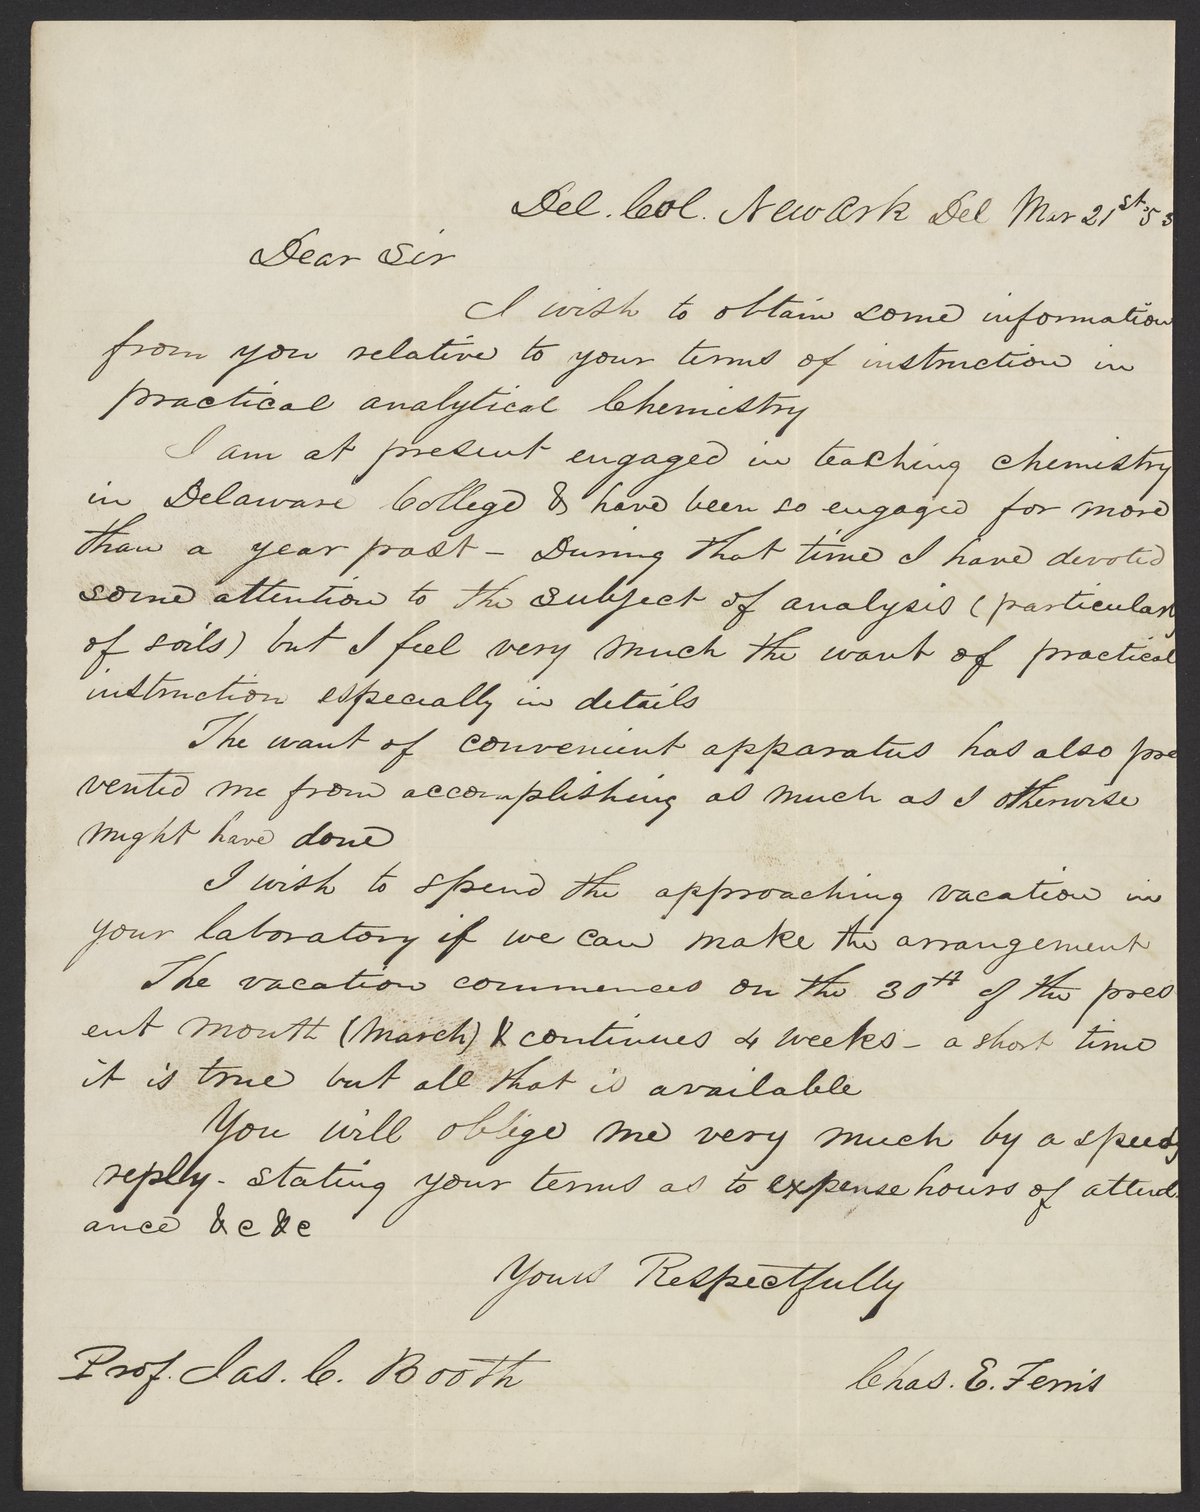 Del. Col. Newark Del Mar 21st '53
Dear Sir
I wish to obtain some information
from you relative to your terms of instruction in
practical analytical Chemistry
I am at present engaged in teaching chemistry
in Delaware College & have been so engaged for more
than a year past - During that time I have devoted
some attention to the subject of analysis (particularly
of soils) but I feel very much the want of practical
instruction especially in details
The want of convenient apparatus has also pre
vented me from accomplishing as much as I otherwise
might have done
I wish to spend the approaching vacation in
your laboratory if we can make the arrangement
The vacation commences on the 30th of the pres
ent month (March) & continues 4 weeks - a short time
it is true but all that is available
You will oblige me very much by a speedy
reply - stating your terms as to expense hours of attend
ance &c &c
Yours Respectfully
Prof. Jas. C. Booth
Chas. E. Ferris